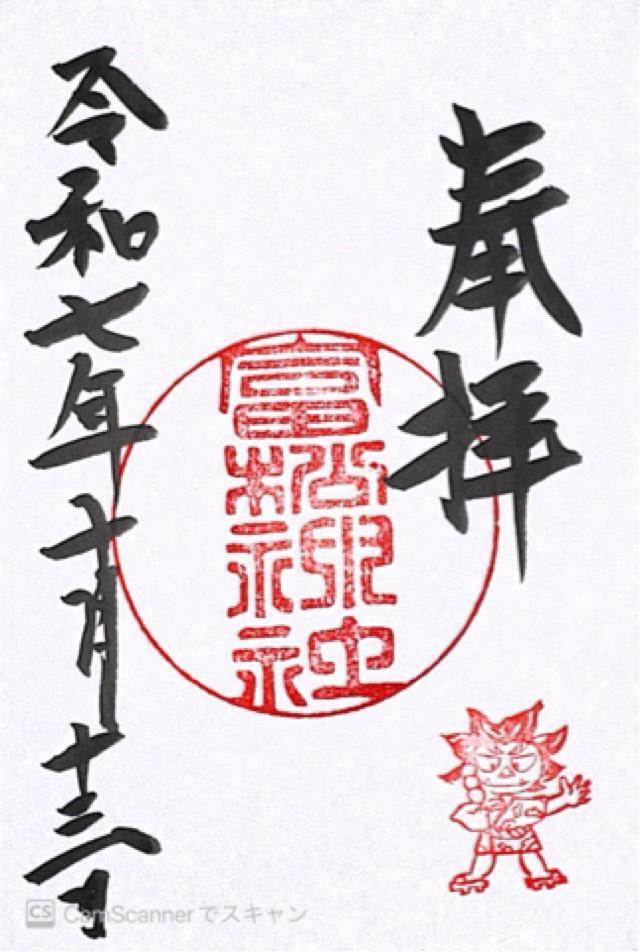 奉拝
富松神社
令和七年十月十三日
CS CamScannerでスキャン